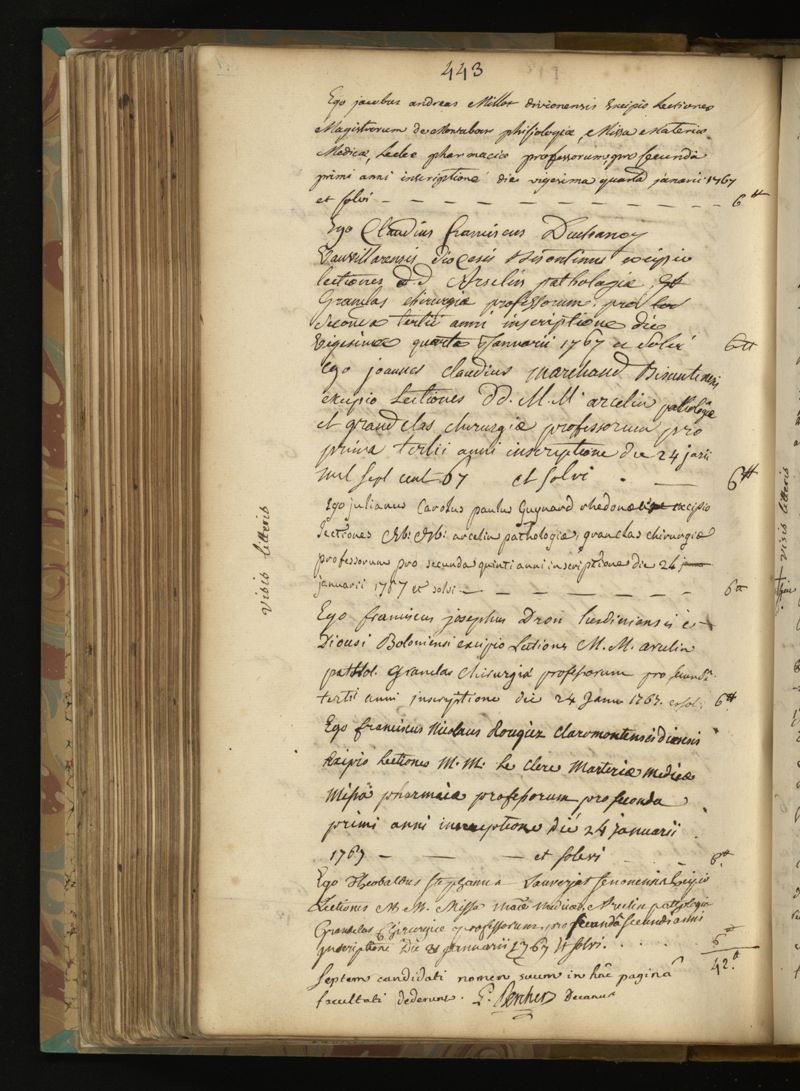 443
Ego jacobus andreas Millot divionensis Excipio Lectiones
Magistrorum de Montabour phisiologiæ, Missa Materiæ
Medicæ, Leclerc pharmaciæ professorum, pro secunda
primi anni inscriptione die vigesima quarta januarii 1767
et solvi — — — — — — — 6tt
Ego Claudius franciscus Duchanoy
Vauvillarensis dioCesis Bisontinus excipio
lectiones d.d Arselin pathologiæ, Et
Granclas chirurgiæ professorum pro
secunda tertii anni inscriptione die
Vigesima quarta Januarii 1767 et solvi 6tt
Ego joannes claudius marchand Bisuntinensis
excipio Lectiones dd. M.M arcelin pathologiæ
et granclas chirurgiæ professorum pro
prima tertii anni inscriptione die 24 jarii
mil sept cent 67 et solvi — 6tt
visis litteris
Ego julianus Carolus paulus Guynard rhedon excipio
lectiones arcelin pathologiæ, granclas chirurgiæ
professorum pro secunda quinti anni inscriptione die 24
januarii 1767 et solvi — — — — — 6tt
Ego franciscus josephus Dron
Diocesi Boloniensi excipio Lectiones M. M. arcelin
pathol. Granclas chirurgiæ professorum pro secunda
tertii anni inscriptione die 24 Janu 1767. et solvi 6tt
Ego franciscus Nicolaus Rougier claromontensis diocesis
Excipio Lectiones M. M. Le Clerc Materiæ medicæ
Missa pharmaciæ professorum pro seconda
primi anni inscriptione die 24 januarii
1767 — — — et solvi 6tt
Ego Theobaldus Stephanus Lauverjat senonensis Excipio
Lectiones M. M. Missa mater medicæ, Arcelin pathologiæ
Granclas Chirurgiæ professorum, pro secunda secundi anni
Inscriptione Die januarii 1767 Et solvi. 6tt
42.tt
Septem candidati nomen suum in hac pagina
facultati dederunt. Decanus